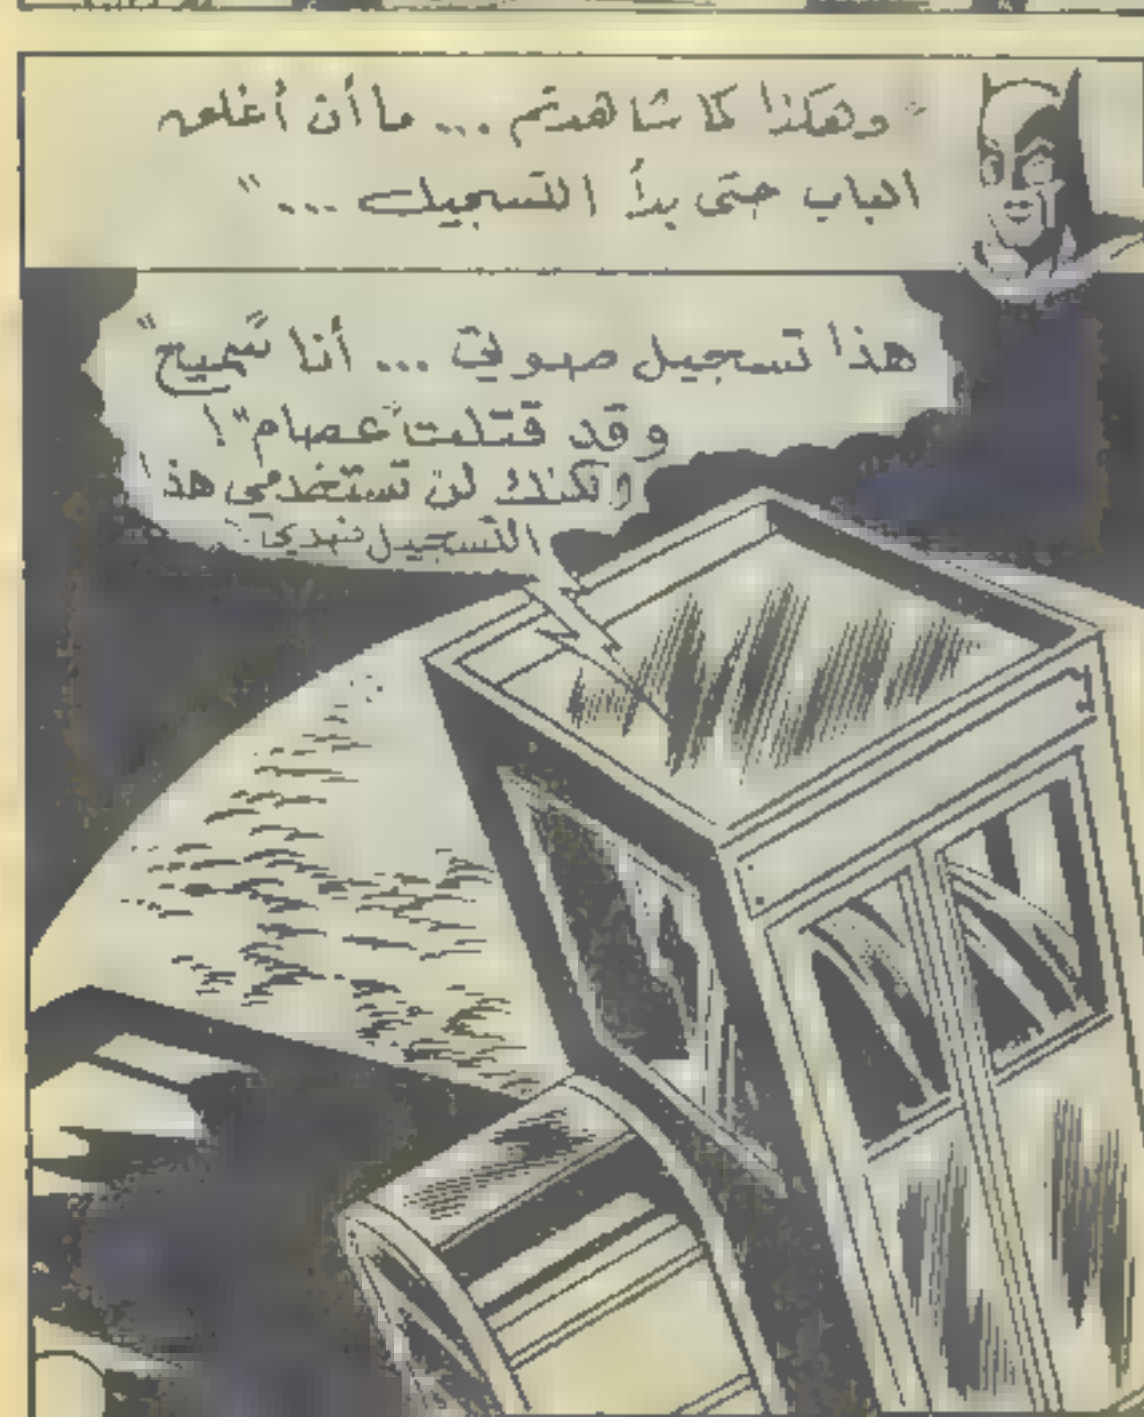 "وهكذا كما شاهدتم ... ما أن أغلق
الباب حتى بدأ التسجيل ..."
هذا تسجيل صوتي ... أنا "سميح"
وقد قتلت "عصام"!
ولكنك لن تستخدمي هذا
التسجيل ضدي